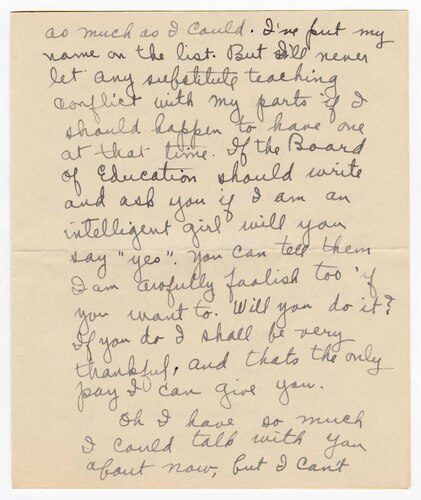 as much as I could. I've put my
name on the list. But I'll never
let any substitute teaching
conflict with my parts if I
should happen to have one
at that time. If the Board
of Education should write
and ask you if I am an
intelligent girl will you
say "yes". You can tell them
I am awfully foolish too if
you want to. Will you do it?
If you do I shall be very
thankful, and thats the only
pay I can give you.
Oh I have so much
I could talk with you
about now, but I can't